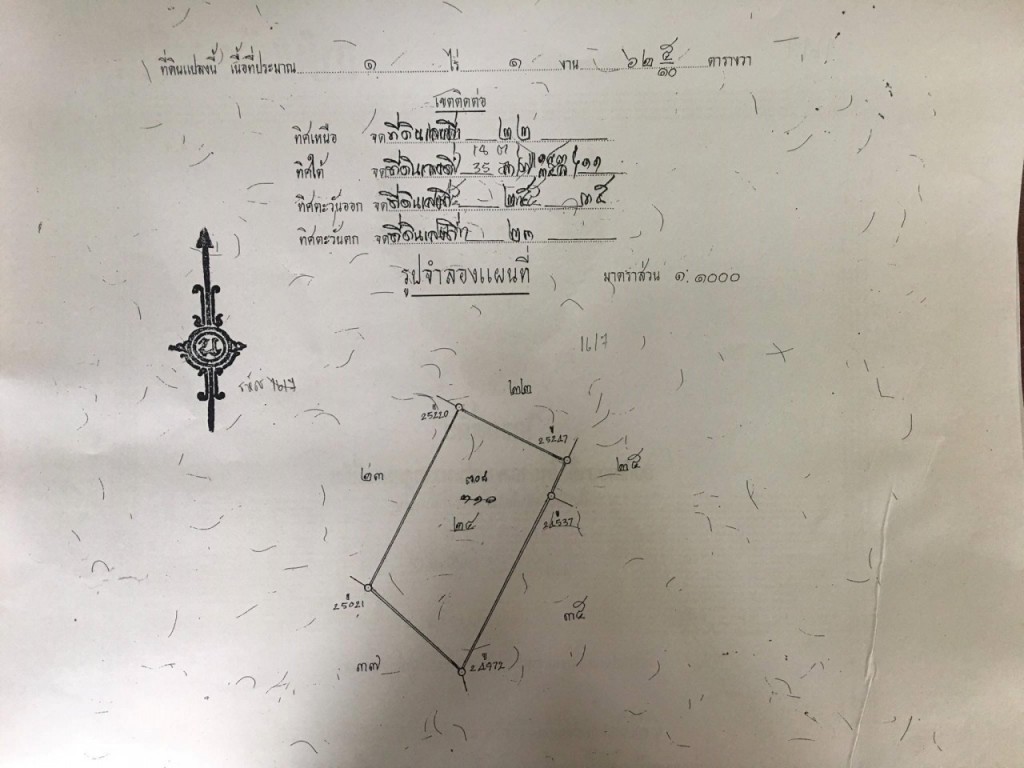 ที่ดินแปลงนี้ เนื้อที่ประมาณ ๑ ไร่ ๑ งาน ๖๒ ๕/๑๐ ตารางวา
เขตติดต่อ
ทิศเหนือ จดที่ดินเลขที่ ๒๒
ทิศใต้ จดที่ดินเลขที่
ทิศตะวันออก จดที่ดินเลขที่ ๒๕ ๓๕
ทิศตะวันตก จดที่ดินเลขที่ ๒๓
รูปจำลองแผนที่ มาตราส่วน ๑:๑๐๐๐
๒๒
๒๕
๒๓
๒๔
24537
25021
๓๕
๓๗
24972